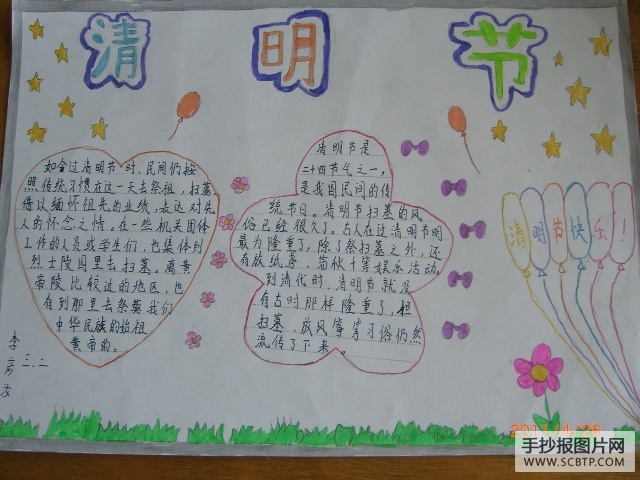 清明节
如今过清明节时,民间仍按
照传统习惯在这一天去祭祖,扫墓,
得以缅怀祖先的业绩,表达对先
人的怀念之情。在一些机关团体
工作的人员或学生们,也集体到
烈士陵园里去扫墓。离黄
帝陵比较近的地区,也
有到那里去祭奠我们
中华民族的始祖
黄帝的。
三.二
李
清明节是
二十四节气之一,
是我国民间的传
统节日。清明节扫墓的风
俗已经很久了。古人在过清明节时
最为隆重了,除了祭扫墓之外,还
有放纸鸢、荡秋千等娱乐活动。
到清代时,清明节就没
有古时那样隆重了,但
扫墓、放风筝等习俗仍然
流传了下来。
清明节快乐!
2011/4/26
手抄报图片网
WWW.SCBTP.COM